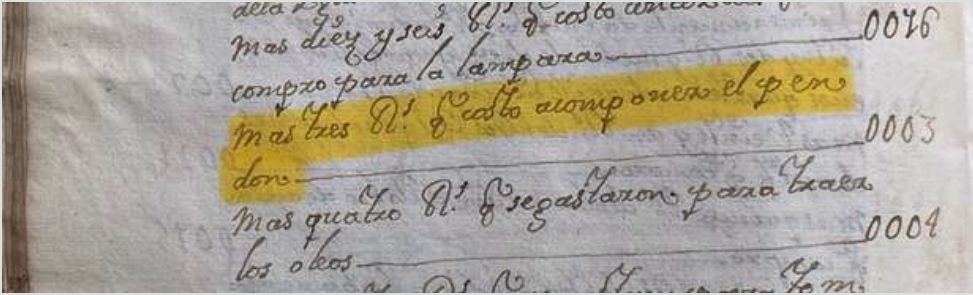 Mas diez y seis Rs. q costo
compro para la lampara 0016
Mas tres Rs. q costo acomponer el pen
don 0003
Mas quatro Rs. q se gastaron para traer
los oleos 0004